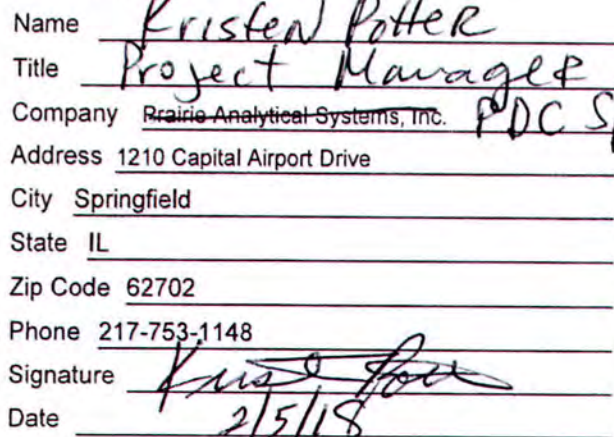 Name Kristen Potter
Title Project Manager
Company Prairie Analytical Systems, Inc. PDC
Address 1210 Capital Airport Drive
City Springfield
State IL
Zip Code 62702
Phone 217-753-1148
Signature
Date 2/5/18